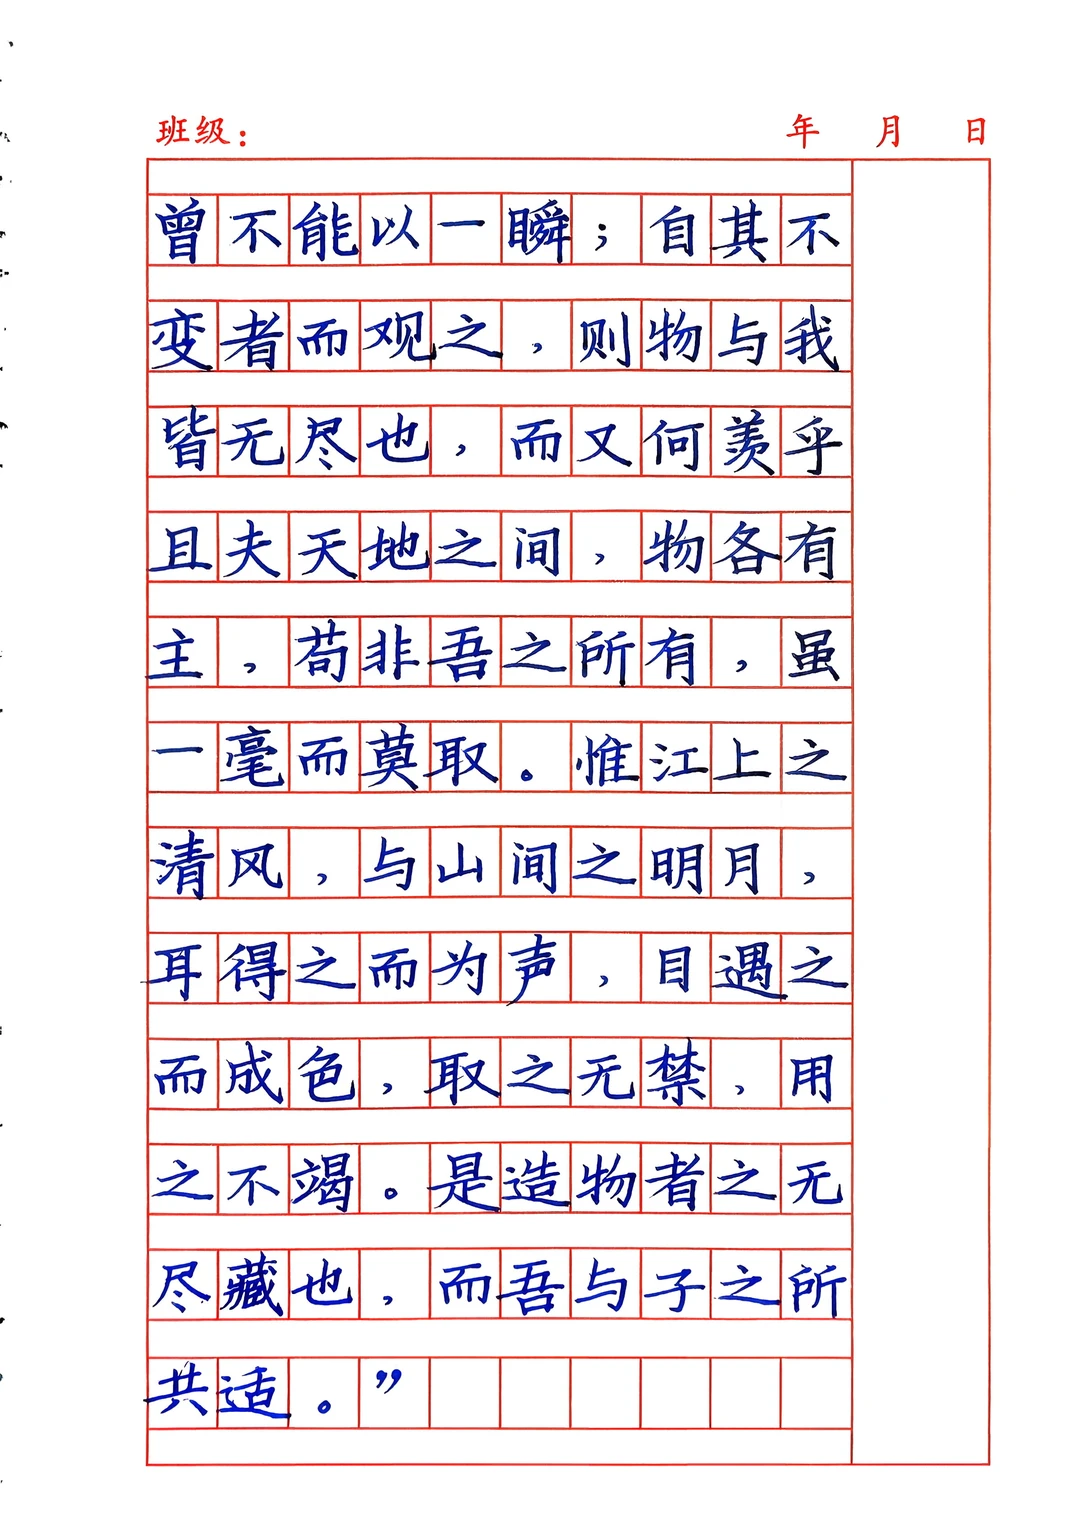 班级： 年 月 日
曾不能以一瞬；自其不
变者而观之，则物与我
皆无尽也，而又何羡乎
且夫天地之间，物各有
主，苟非吾之所有，虽
一毫而莫取。惟江上之
清风，与山间之明月，
耳得之而为声，目遇之
而成色，取之无禁，用
之不竭。是造物者之无
尽藏也，而吾与子之所
共适。”